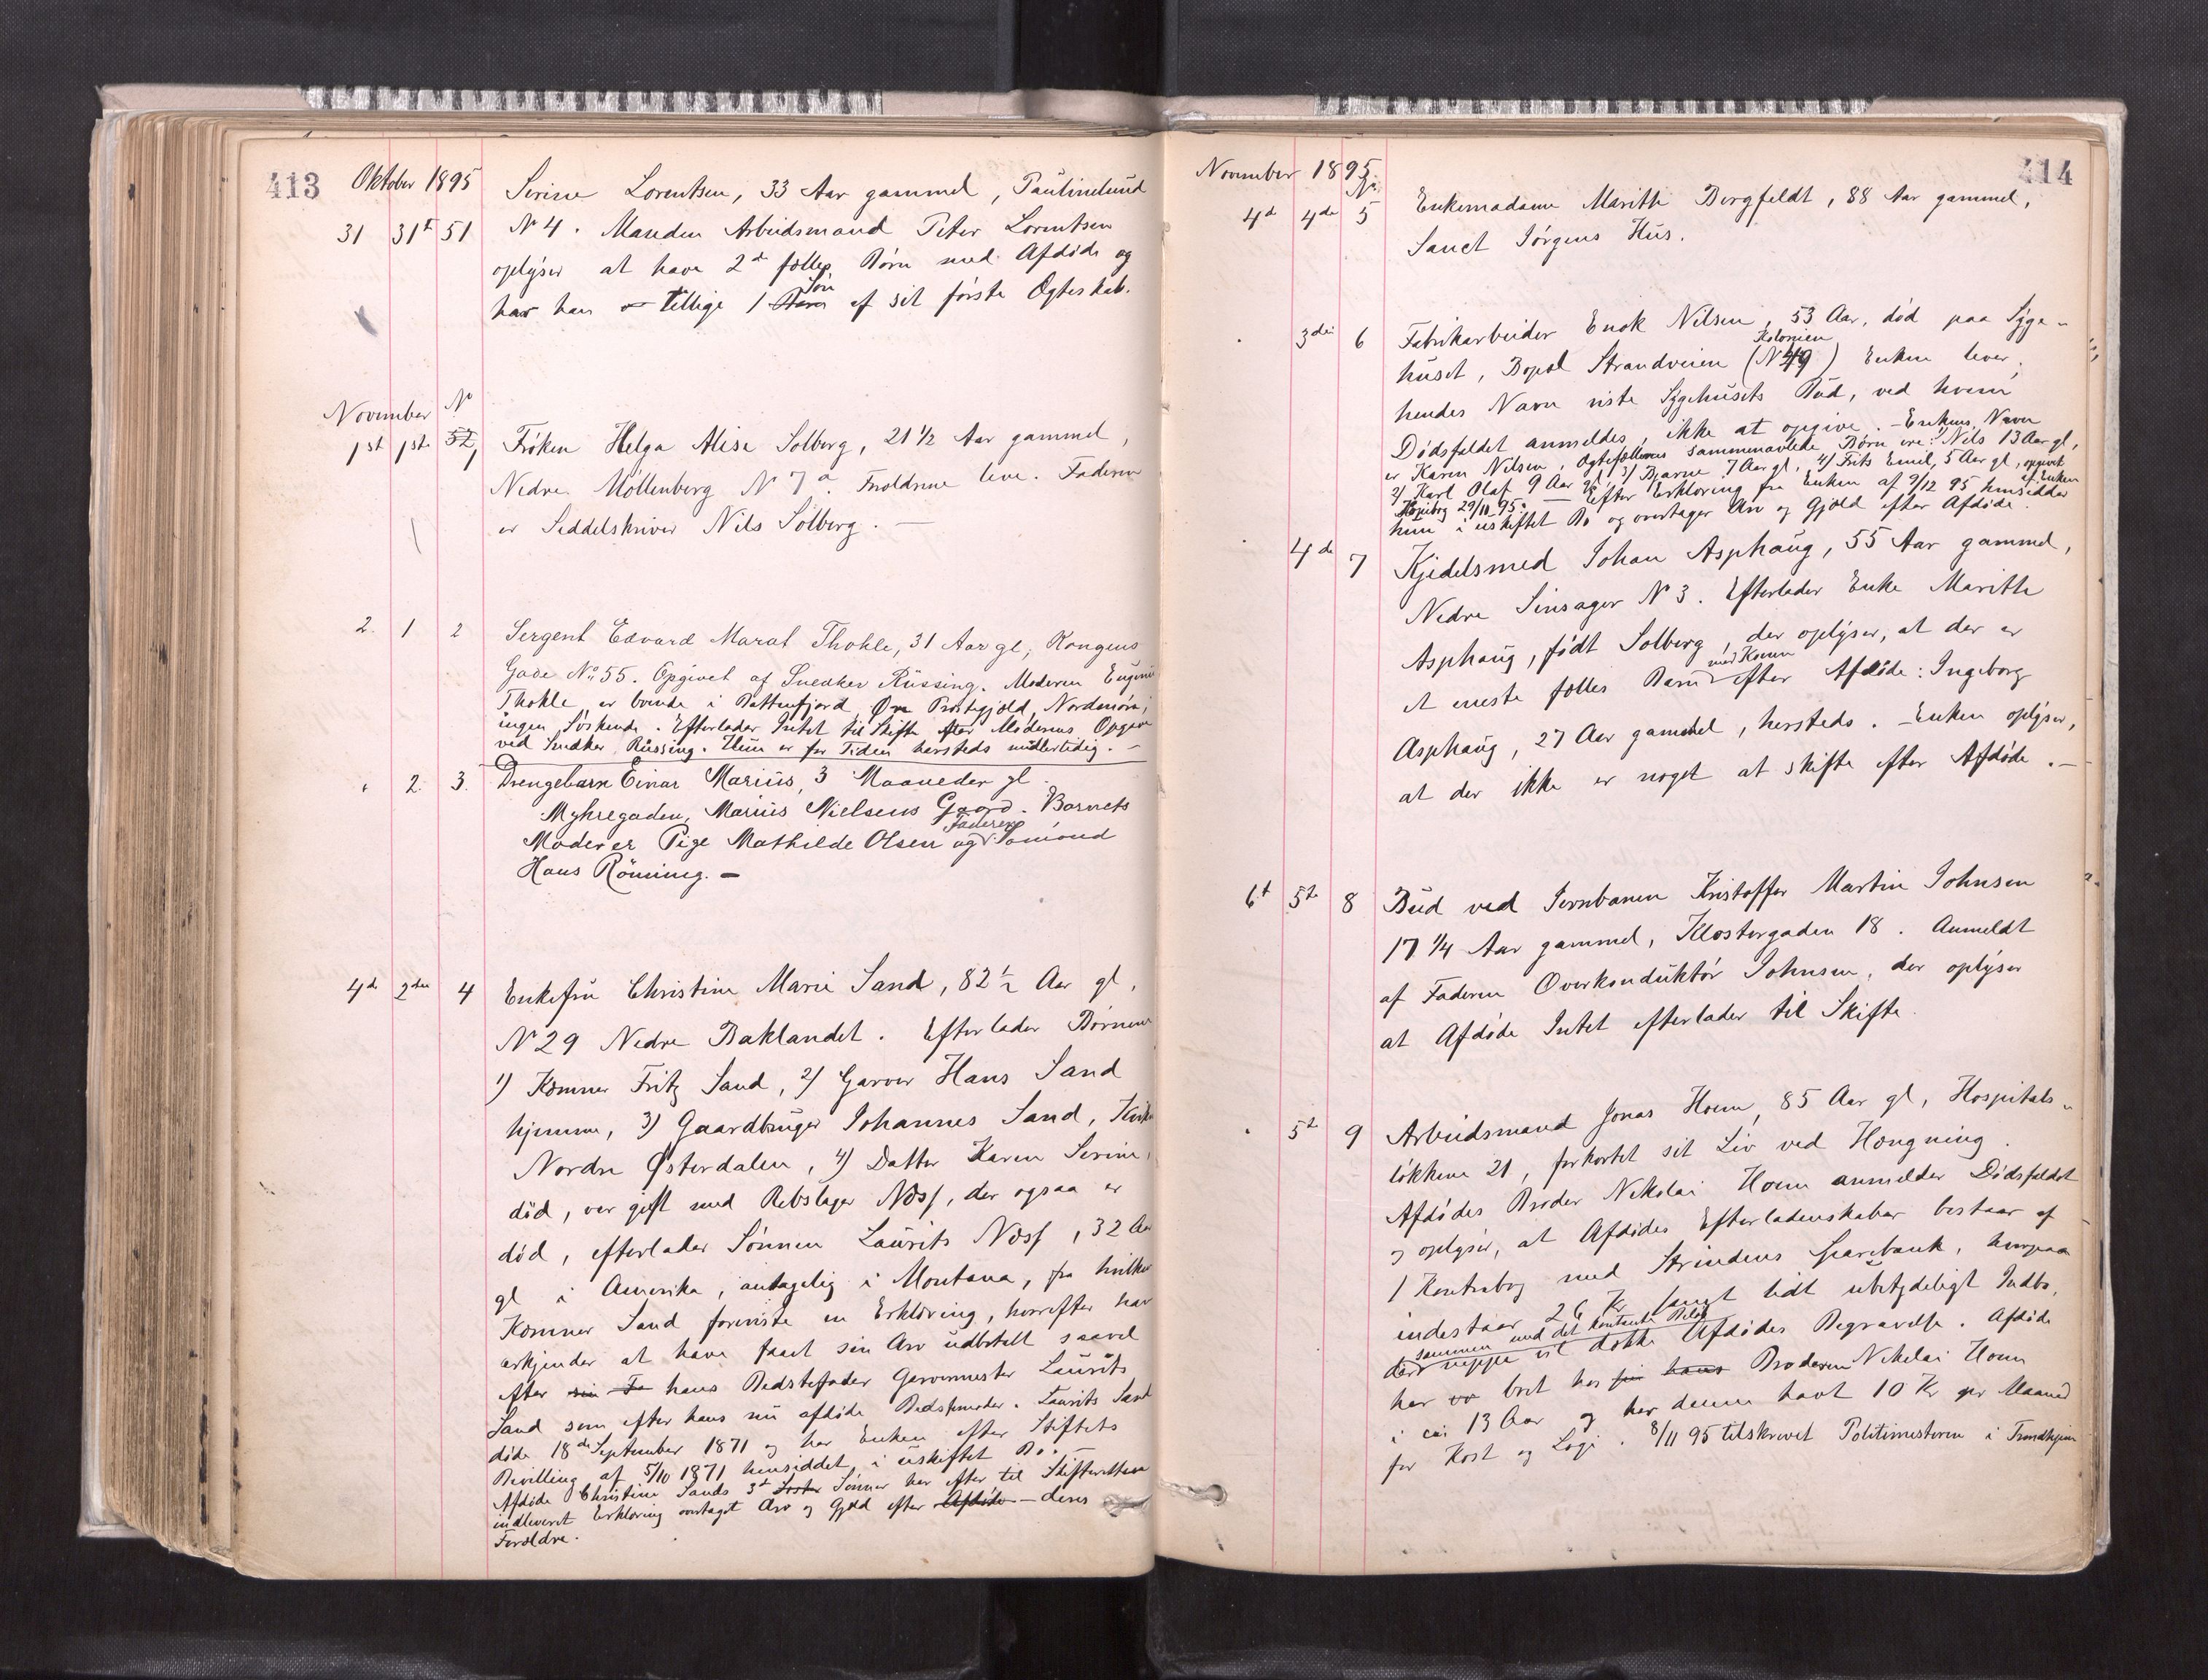 413 Oktober 1895
Serine Lorentsen, 33 Aar gammel, Paulinelund
31 31t 51 N 4. Manden Arbeidsmand Peter Lorentsen
oplyser at have 2de fælles Børn med Afdøde og
har han tillige 1 Barn Søn af sit første Ægteskab.
November No
1st 1ste 52 1 Frøken Helga Alise Solberg, 21 1/2 Aar gammel,
Nedre Møllenberg N 7a. Forældrene leve. Faderen
er Seddelskriver Nils Solberg. —
2. 1 2 Sergent Edvard Marat Thohle, 31 Aar gl, Kongens
Gade No 55. Opgivet af Snedker Rüssing. Moderen Eugenie
Thohle er boende i Battenfjord, Øre Præstegjeld, Nordmøre;
ingen Søskende. Efterlader Intet til Skifte efter Moderens Opgave
ved Snedker Rüssing. Hun er for Tiden hersteds midlertidig. —
" 2. 3. Drengebarn Einar Marius, 3 Maaneder gl.
Myhregaden, Marius Nielsens Gaard. Barnets
Moder er Pige Mathilde Olsen og Faderen Sømand
Hans Rönning. —
4de 2den 4 Enkefru Christine Marie Sand, 82 1/2 Aar gl,
N 29 Nedre Baklandet. Efterlader Børnene
1) Kæmner Fritz Sand, 2) Garver Hans Sand
hjemme, 3) Gaardbruger Johannes Sand,
Nordre Østerdalen, 4) Datter Karen Serine,
død, var gift med Rebslager Næss, der ogsaa er
død, efterlader Sønnen Laurits Næss, 32 Aar
gl i Amerika, antagelig i Montana, fra hvilken
Kæmner Sand foreviste en Erklæring, hvorefter han
erkjender at have faaet sin Arv udbetalt saavel
efter sin Fa hans Bedstefader Garvermester Laurits
Sand som efter hans nu afdøde Bedstemoder. Laurits Sand
døde 18de September 1871 og har Enken efter Skiftets
Bevilling af 5/10 1871 hensiddet i uskiftet Bo. —
Afdøde Christine Sands 3de Sønner har efter til Skifteretten
indleveret Erklæring overtaget Arv og Gjæld efter Afdøde — deres
Forældre.
November 1895. 414
No
4de 4de 5 Enkemadame Marithe Bergfeldt, 88 Aar gammel,
Sanct Jørgens Hus.
" 3die 6 Fabrikarbeider Enok Nilsen, 53 Aar, død paa Syge-
huset, Bopæl Strandveien Kolonien (N 49) Enken lever;
hendes Navn viste Sygehusets Bud, ved hvem
Dødsfaldet anmeldes, ikke at opgive. — Enkens Navn
er Karen Nilsen, Ægtefællernes sammenavlede Børn ere: 1) Nils 13 Aar gl,
2) Karl Olaf 9 Aar gl, 3) Bjarne 7 Aar gl, 4) Frits Emil, 5 Aar gl, opgivet af Enken
29/11 95. — Efter Erklæring fra Enken af 9/12 95 hensidder
hun i uskiftet Bo og overtager Arv og Gjæld efter Afdøde.
" 4de 7 Kjedelsmed Johan Asphaug, 55 Aar gammel,
Nedre Sinsager N 3. Efterlader Enke Marithe
Asphaug, født Solberg, der oplyser, at der er
et eneste fælles Barn med Konen efter Afdøde: Ingeborg
Asphaug, 27 Aar gammel, hersteds. — Enken oplyser,
at der ikke er noget at skifte efter Afdøde. —
6t 5te 8 Bud ved Jernbanen Kristoffer Martin Johnsen
17 1/4 Aar gammel, Klostergaden 18. Anmeldt
af Faderen Overkonduktør Johnsen, der oplyser
at Afdøde Intet efterlader til Skifte.
" 5te 9 Arbeidsmand Jonas Hoem, 85 Aar gl, Hospitals-
løkken 21, forkortet sit Liv ved Hængning.
Afdødes Broder Nikolai Hoem anmelder Dødsfaldet
og oplyser, at Afdødes Efterladenskaber bestaar af
1 Kontrabog med Strindens Sparebank, hvorpaa
indestaar 26 Kr samt lidt ubetydeligt Indbo,
der sammen med det kontante Beløb neppe vil dække Afdødes Begravelse. Afdøde
har vo boet hos sin hans Broderen Nikolai Hoem
i ca: 13 Aar og har denne havt 10 Kr pr Maaned
for Kost og Logi. 8/11 95 tilskrevet Politimesteren i Trondhjem